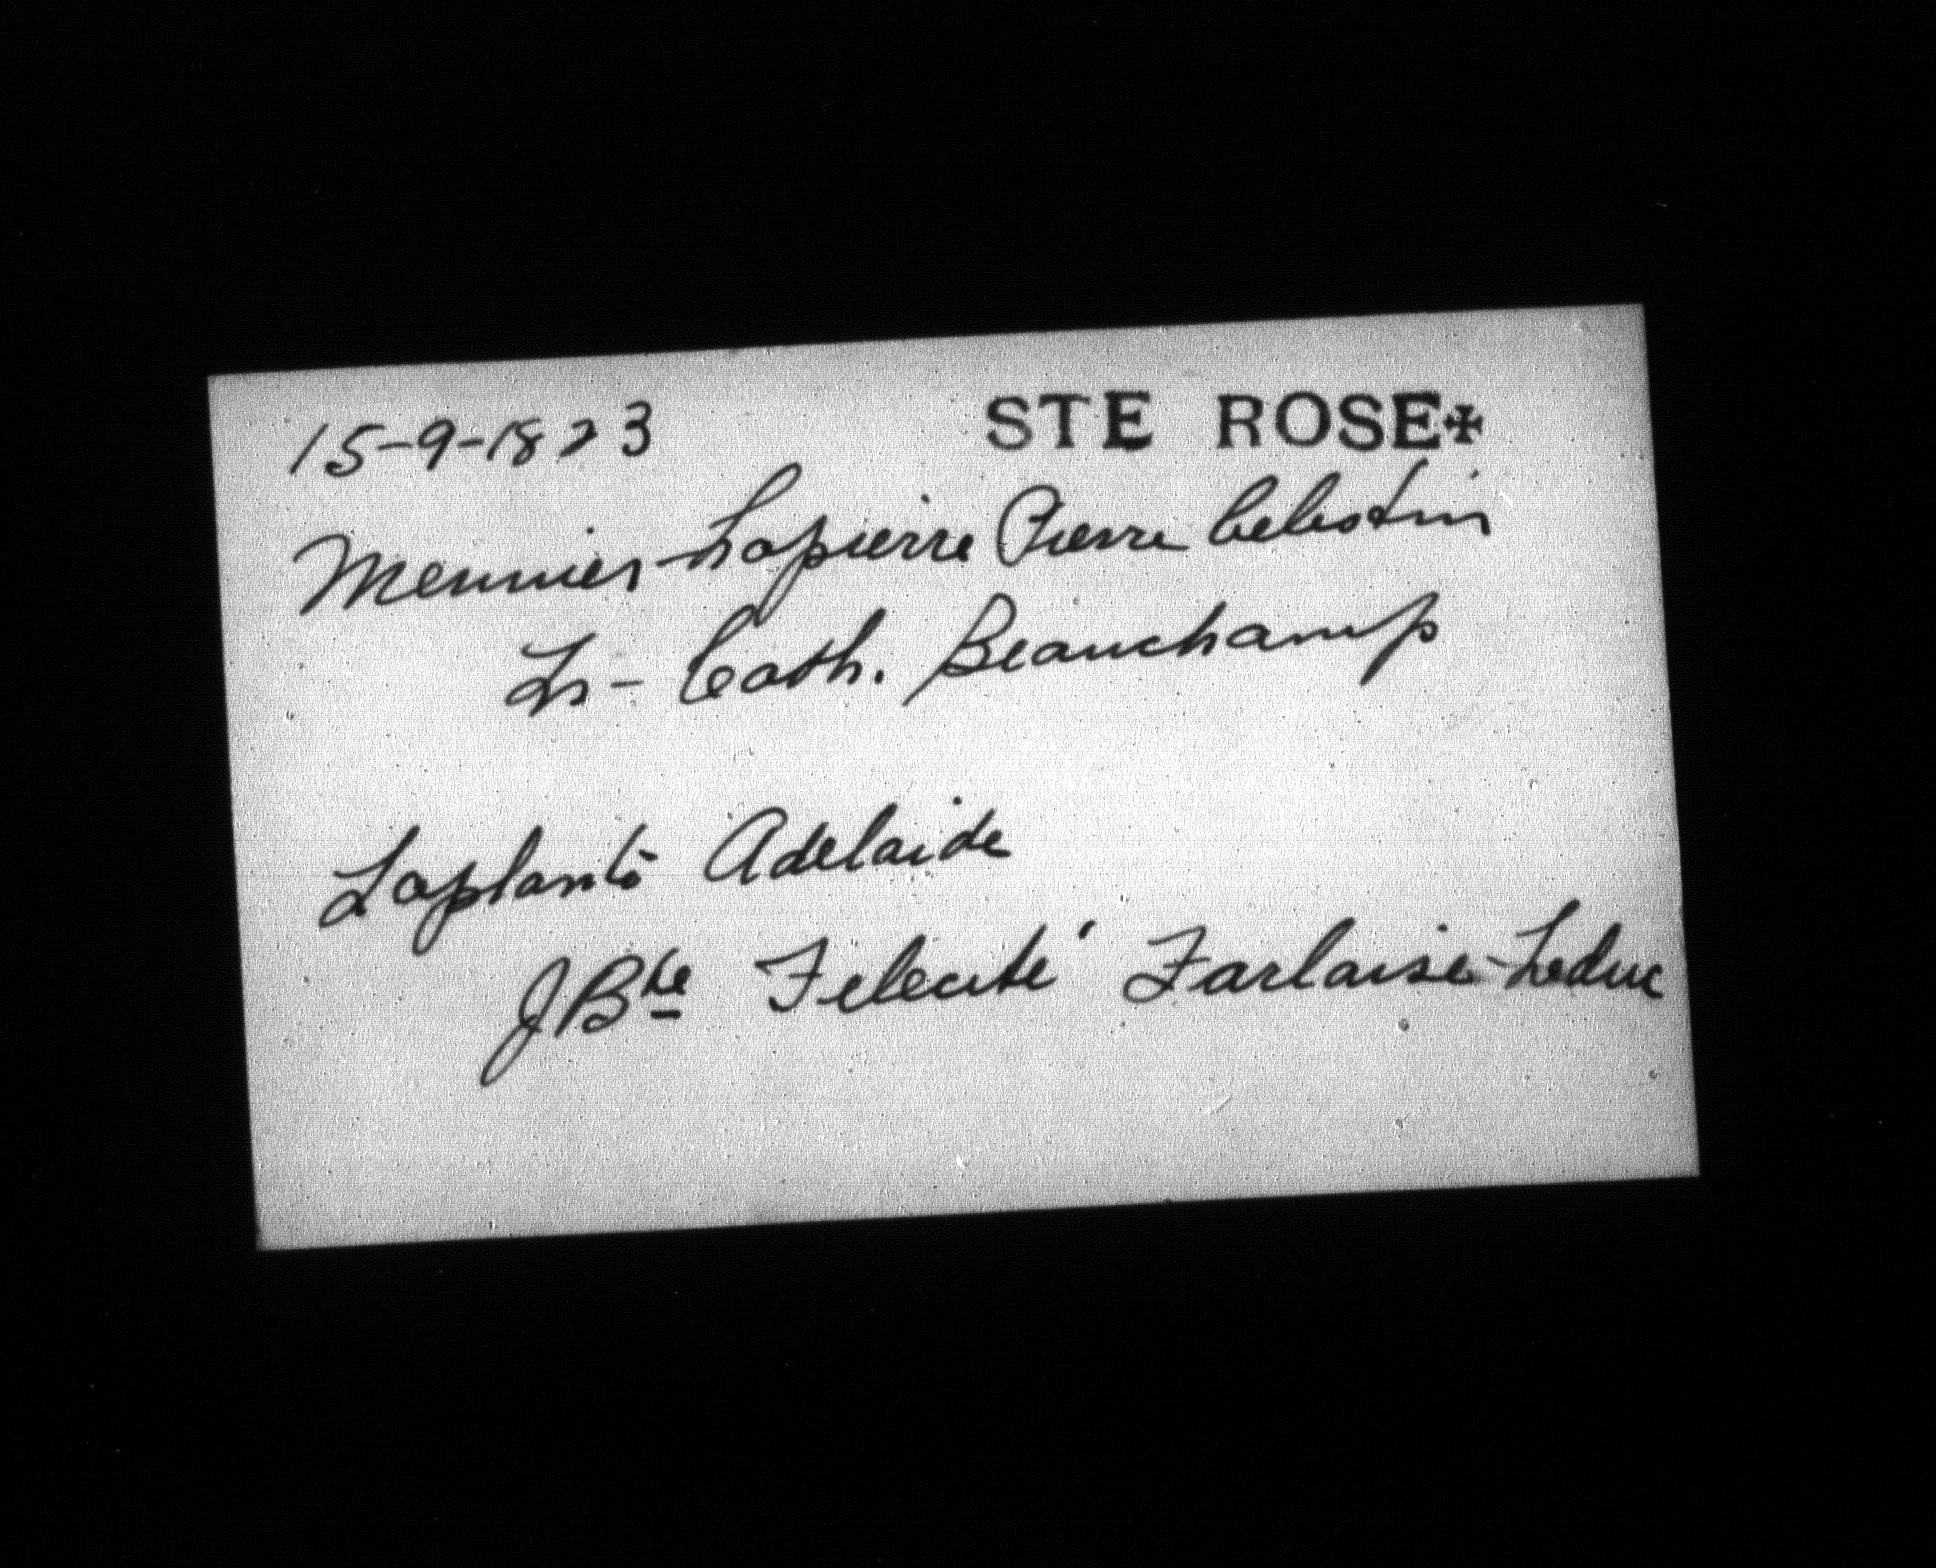 15-9-1823 STE ROSE✠
Meunier-Lapierre Pierre Celestin
Ls - Cath. Beauchamp
Laplante Adelaide
JBte Felecité Farlaise-Leduc